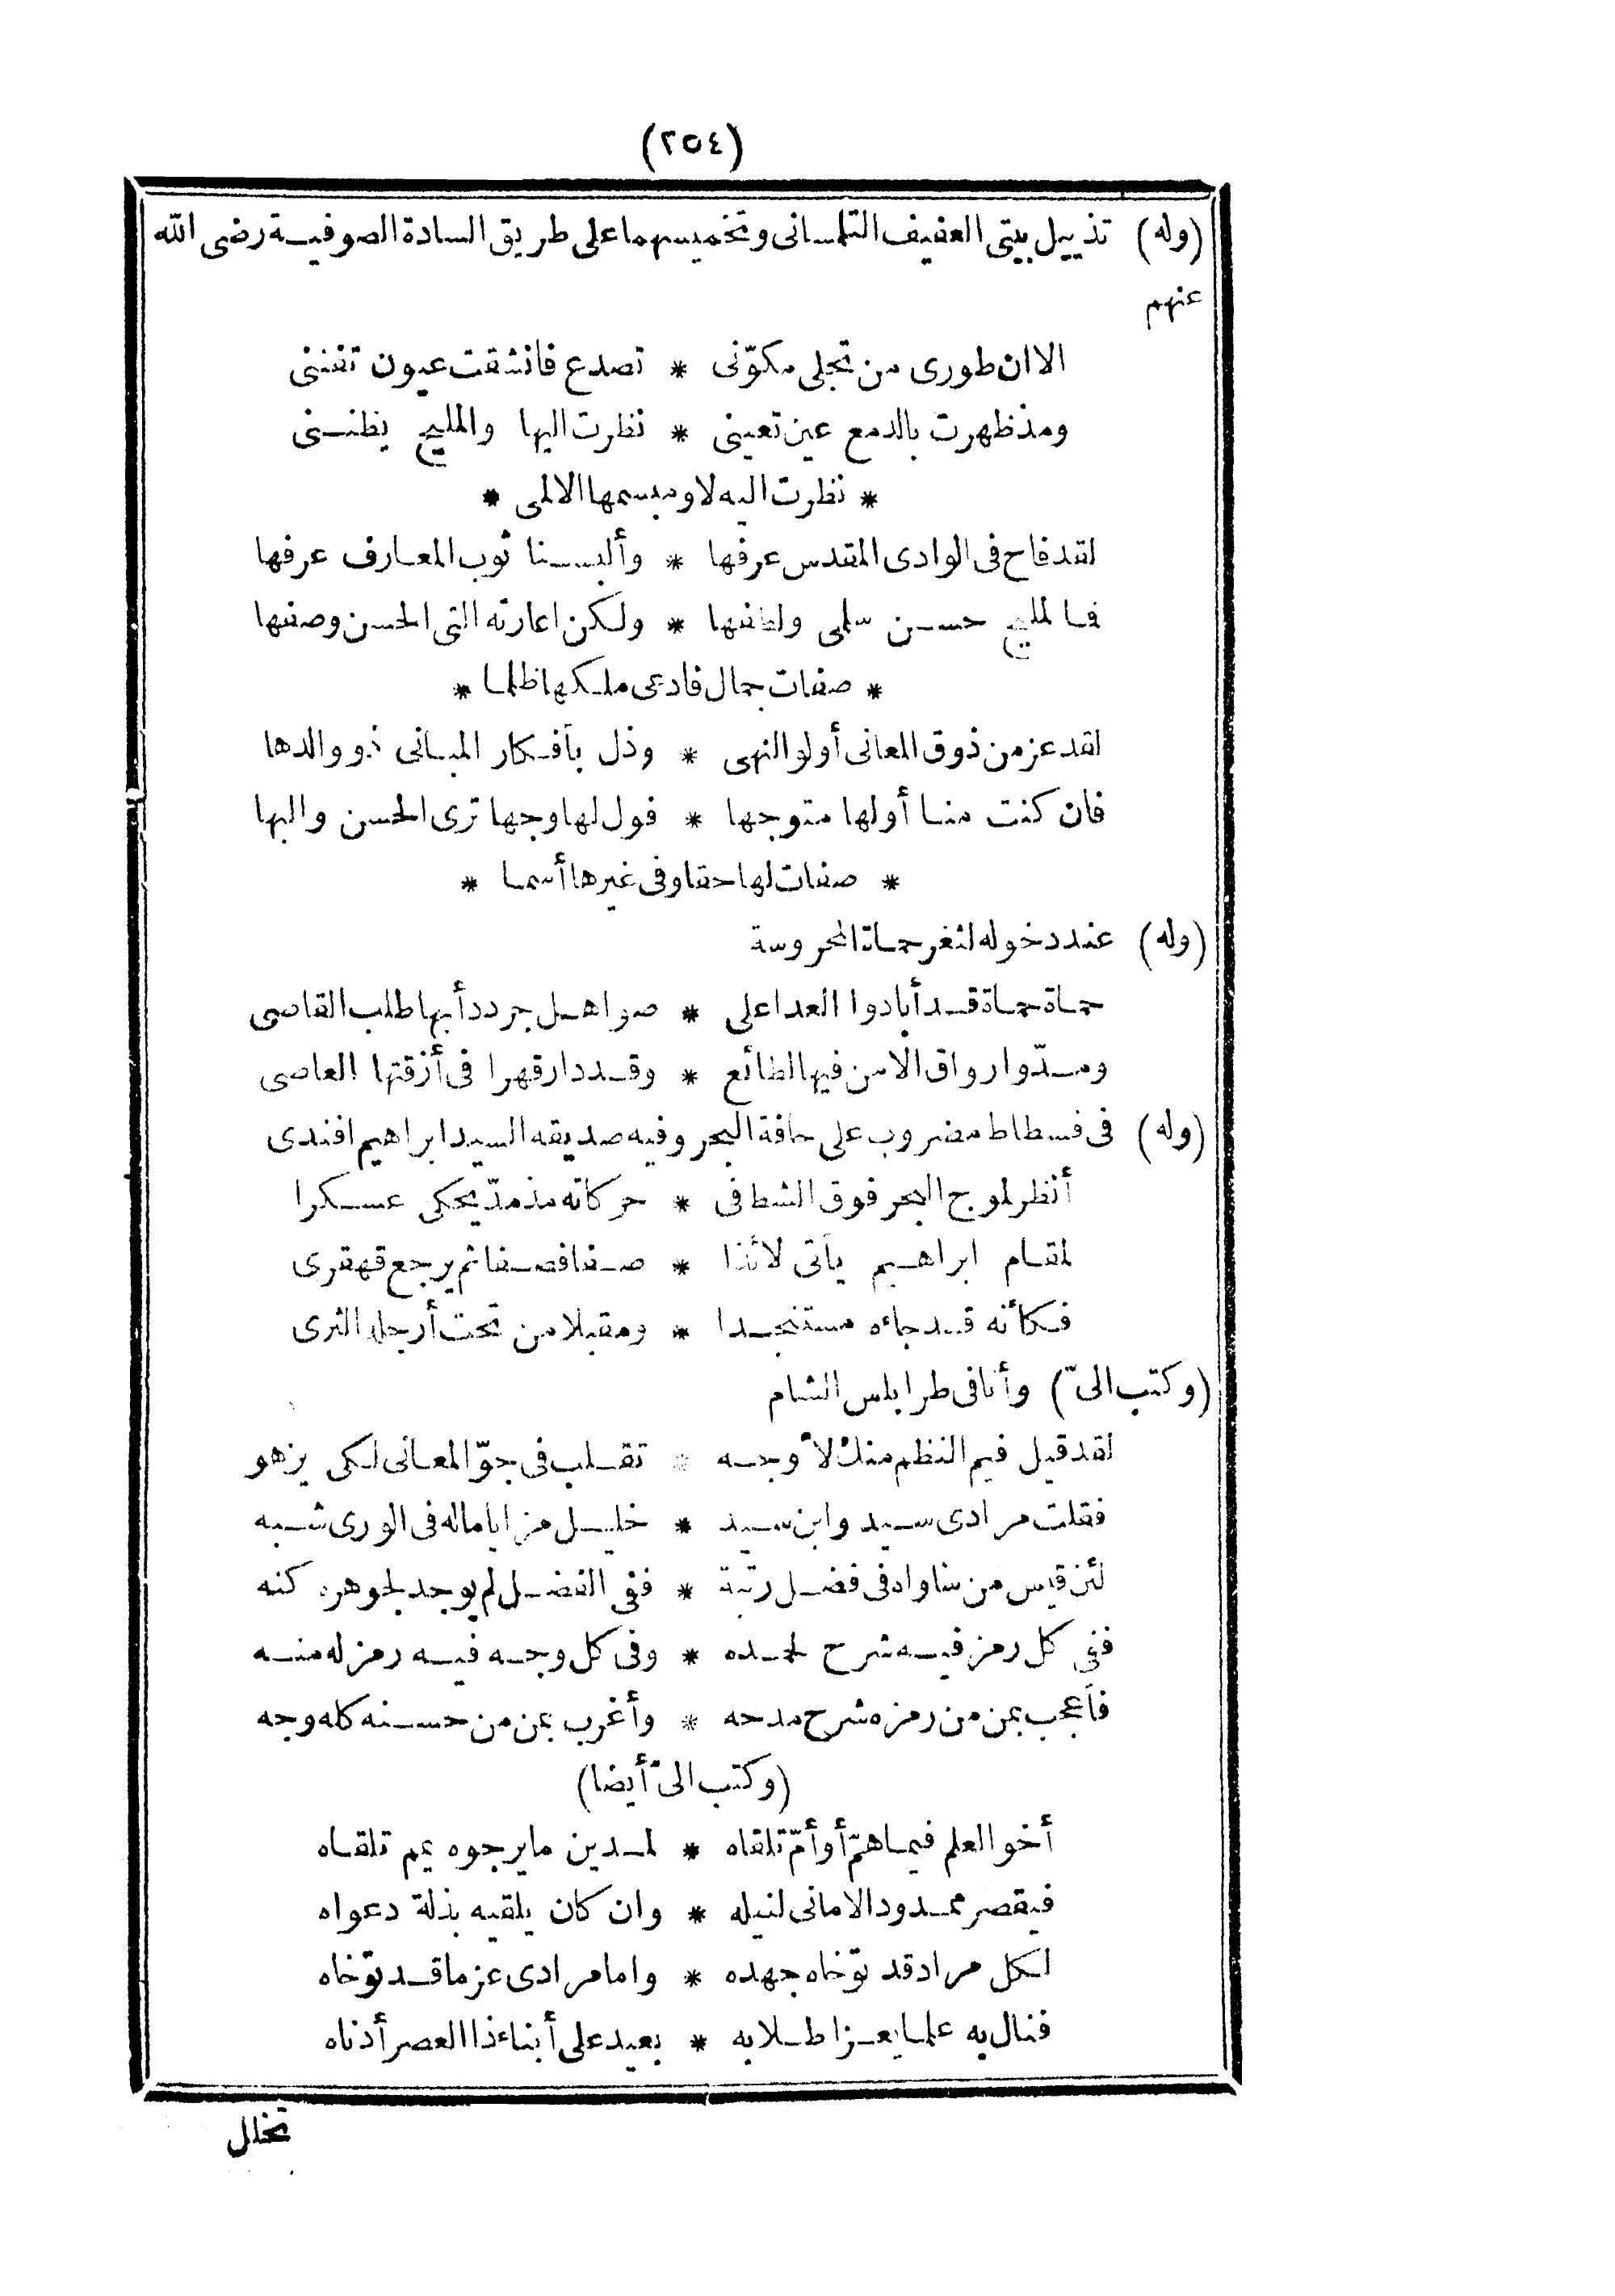 (٢٥٤)
(وله) تذييل بيتى العفيف التلمسانى وتخميسهما على طريق السادة الصوفية رضى الله
عنهم
الا ان طورى من تجلى مكوّنى * تصدع فانشقت عيون تفننى
ومذ ظهرت بالدمع عين تعيننى * نظرت اليها والمليح يظننى
* نظرت اليه لا ومبسمها الالمى *
لقد فاح فى الوادى المقدس عرفها * وألبسنا ثوب المعارف عرفها
فما لمليح حسن سلمى ولطفها * ولكن اعارته التى الحسن وصفها
* صفات جمال فادعى ملكها ظلما *
لقد عز من ذوق المعانى أولو النهى * وذل بأفكار المبانى ذو والدها
فان كنت منا أولها متوجها * فول لها وجها ترى الحسن والبها
* صفات لها حقا وفى غيرها أسما *
(وله) عند دخوله لثغر حماة المحروسة
حماة حماة قد أبادوا العدا على * صواهل جرد دأبها طلب القاصى
ومدّوا رواق الامن فيها لطائع * وقد دار قهرا فى أزقتها العاصى
(وله) فى فسطاط مضروب على حافة البحر وفيه صديقه السيد ابراهيم افندى
أنظر لموج البحر فوق الشط فى * حركاته مذ مدّ يحكى عسكرا
لمقام ابراهيم يأتى لائذا * صفا فصفا ثم يرجع قهقرى
فكأنه قد جاءه مستنجدا * ومقبلا من تحت أرجله الثرى
(وكتب الىّ) وأنا فى طرابلس الشام
لقد قيل فيم النظم منك لأوجه * تقلب فى جوّ المعانى لكى يزهو
فقلت مرادى سيد وابن سيد * خليل مزايا ماله فى الورى شبه
لئن قيس من ساواه فى فضل رتبة * ففى الفضل لم يوجد لجوهره كنه
ففى كل رمز فيه شرح لحمده * وفى كل وجه فيه رمز له منه
فأعجب بمن من رمزه شرح مدحه * وأغرب بمن من حسنه كله وجه
(وكتب الىّ أيضا)
أخو العلم فيما همّ أو أمّ تلقاه * لمدين ما يرجوه يمم تلقاه
فيقصر ممدود الامانى لنيله * وان كان يلقيه بذلة دعواه
لكل مراد قد توّخاه جهده * واما مرادى عز ما قد توّخاه
فنال به علما يعز اطلابه * بعيد على أبناء ذا العصر أدناه
تخال